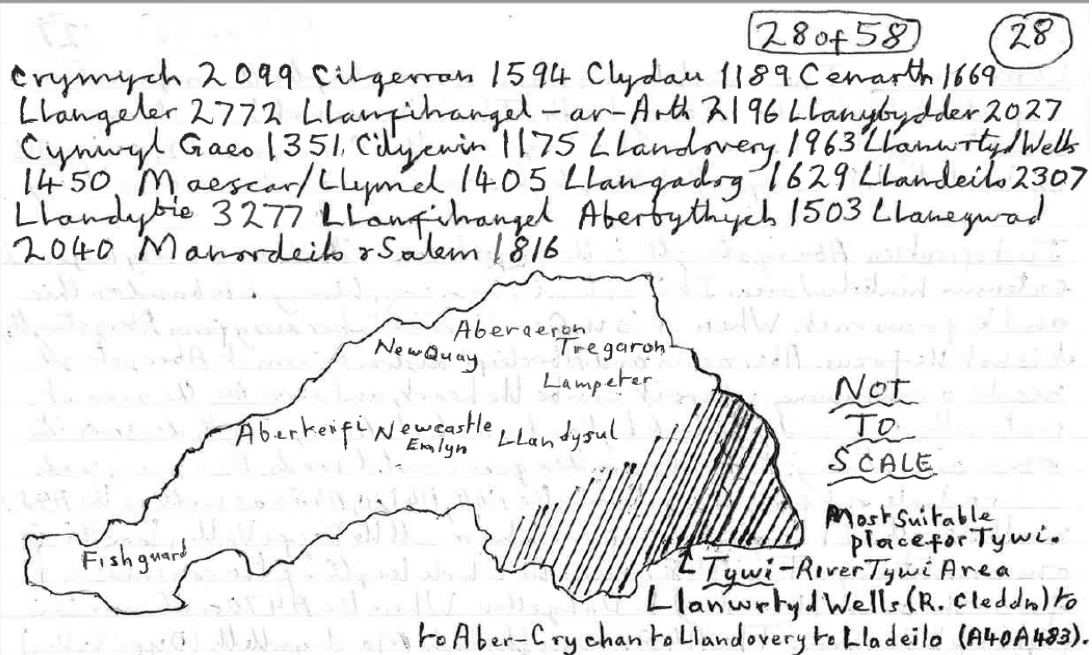 28 of 58
28
Crymych 2099 Cilgerran 1594 Clydau 1189 Cenarth 1669
Llangeler 2772 Llanfihangel-ar-Arth 2196 Llanybydder 2027
Cynwyl Gaeo 1351. Cilycwin 1175 Llandovery 1963 Llanwrtyd Wells
1450 Maescar/Llywel 1405 Llangadog 1629 Llandeilo 2307
Llandybie 3277 Llanfihangel Aberbythych 1503 Llanegwad
2040 Manordeilo & Salem 1816
Aberaeron
New Quay
Tregaron
Lampeter
Aberteifi
Newcastle
Emlyn
Llandysul
Fishguard
NOT
TO
SCALE
Most Suitable
place for Tywi.
Tywi-River Tywi Area
Llanwrtyd Wells (R. Cleddn) to
to Aber-Crychan to Llandovery to Lladeilo (A40A483).